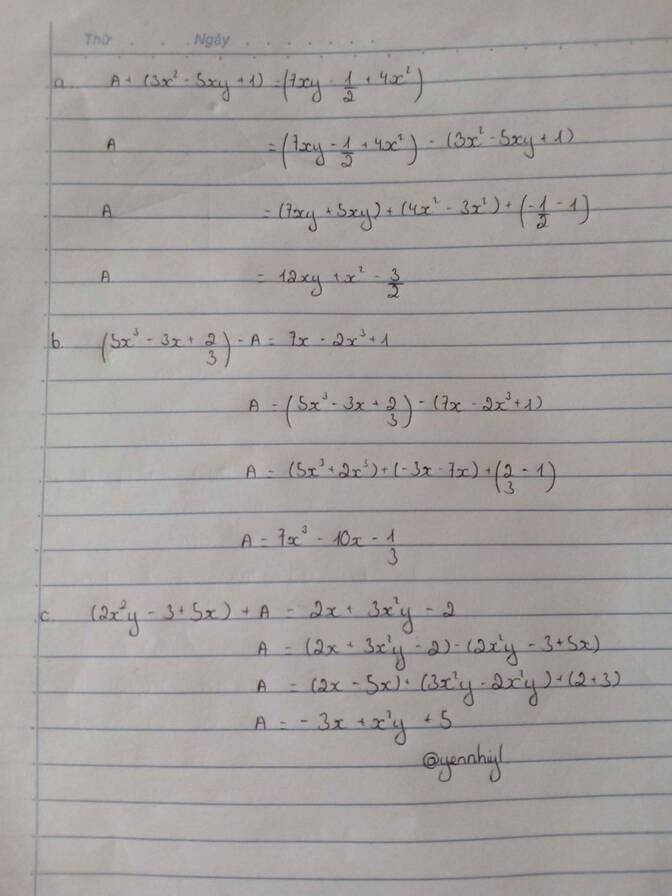 Thứ . . . . Ngày . . . . . . . .
a. A + (3x² - 5xy + 1) = (7xy - 1/2 + 4x²)
A = (7xy - 1/2 + 4x²) - (3x² - 5xy + 1)
A = (7xy + 5xy) + (4x² - 3x²) + (-1/2 - 1)
A = 12xy + x² - 3/2
b. (5x³ - 3x + 2/3) - A = 7x - 2x³ + 1
A = (5x³ - 3x + 2/3) - (7x - 2x³ + 1)
A = (5x³ + 2x³) + (-3x - 7x) + (2/3 - 1)
A = 7x³ - 10x - 1/3
c. (2x²y - 3 + 5x) + A = 2x + 3x²y - 2
A = (2x + 3x²y - 2) - (2x²y - 3 + 5x)
A = (2x - 5x) + (3x²y - 2x²y) + (2 + 3)
A = - 3x + x²y + 5
@yennhiyl